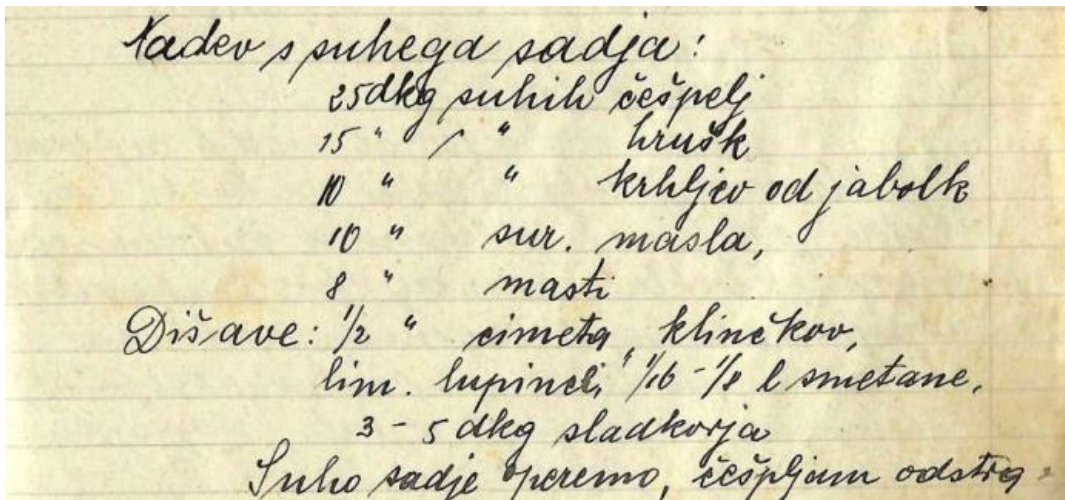 Nadev s suhega sadja:
25 dkg suhih češpelj
15 " " hrušk
10 " " krhljev od jabolk
10 " sur. masla,
8 " masti
Dišave: 1/2 " cimeta, klinčkov,
lim. lupinci, 1/16 - 1/8 l smetane,
3 - 5 dkg sladkorja
Suho sadje operemo, češpljam odstra-